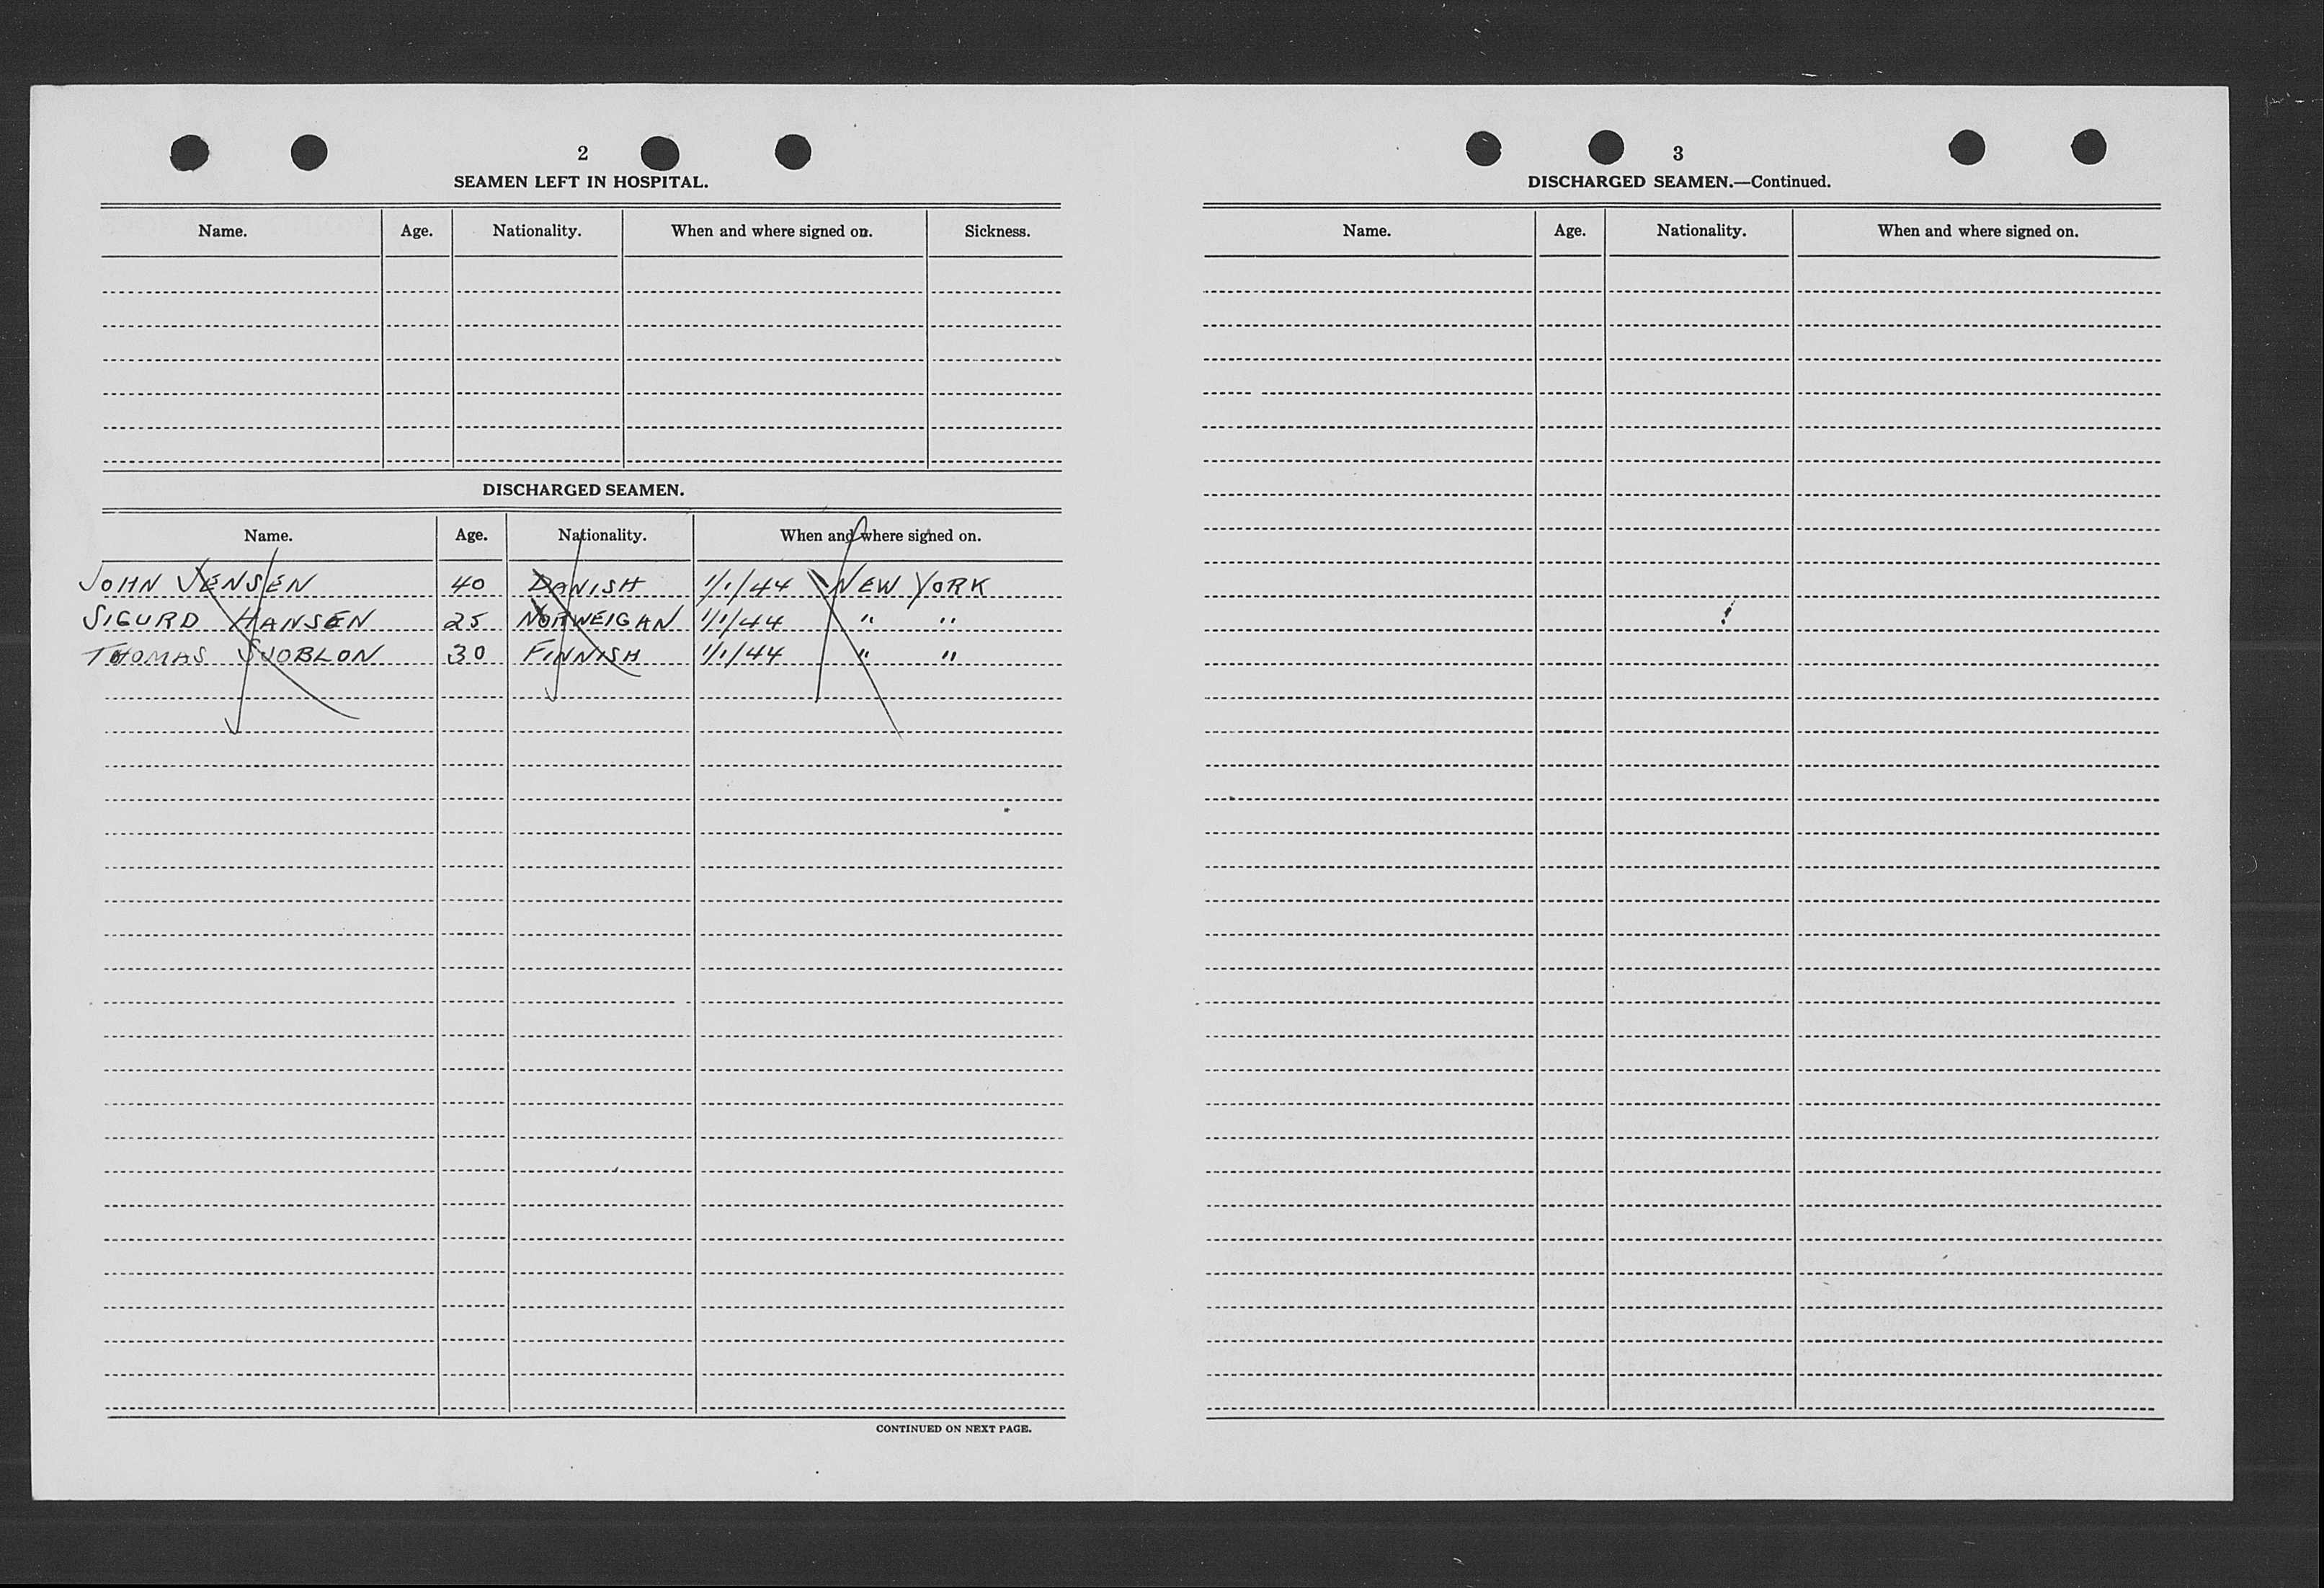 2
SEAMEN LEFT IN HOSPITAL.
Name. Age. Nationality. When and where signed on. Sickness.
DISCHARGED SEAMEN.
Name. Age. Nationality. When and where signed on.
JOHN JENSEN 40 DANISH 1/1/44 NEW YORK
SIGURD HANSEN 25 NORWEIGAN 1/1/44 " "
THOMAS SJOBLON 30 FINNISH 1/1/44 " "
CONTINUED ON NEXT PAGE.
3
DISCHARGED SEAMEN.—Continued.
Name. Age. Nationality. When and where signed on.